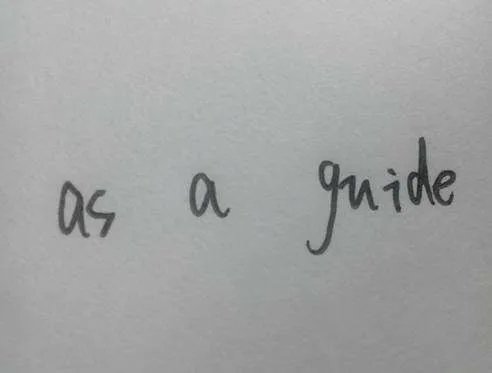 as a guide